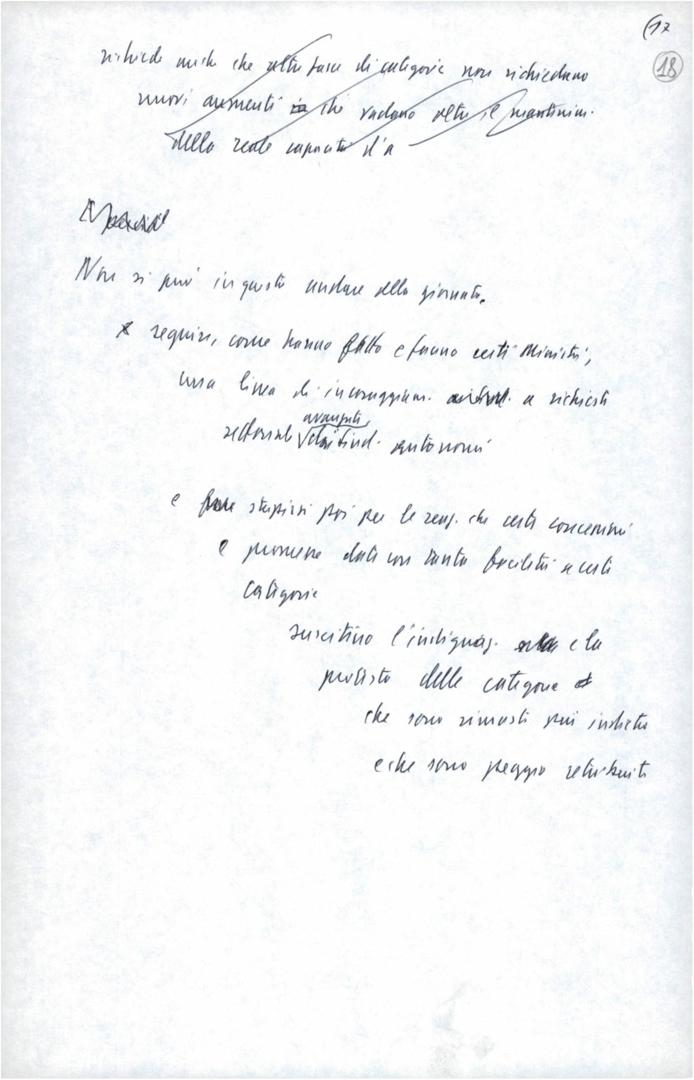 17
18
richiede anche che altre fasce di categorie non richiedano
nuovi aumenti che vadano oltre il mantenim.
della reale capacità d'a
Non si può in questo andare alla giornata.
seguire, come hanno fatto e fanno certi Ministri,
una linea di incoraggiam. a richieste
settoriali avanzate
dai sind. autonomi
e stupirsi poi per le reaz. che certe concessioni
e promesse date con tanta facilità a certe
categorie
suscitino l'indignaz. e la
protesta delle categorie
che sono rimaste più indietro
e che sono peggio retribuite